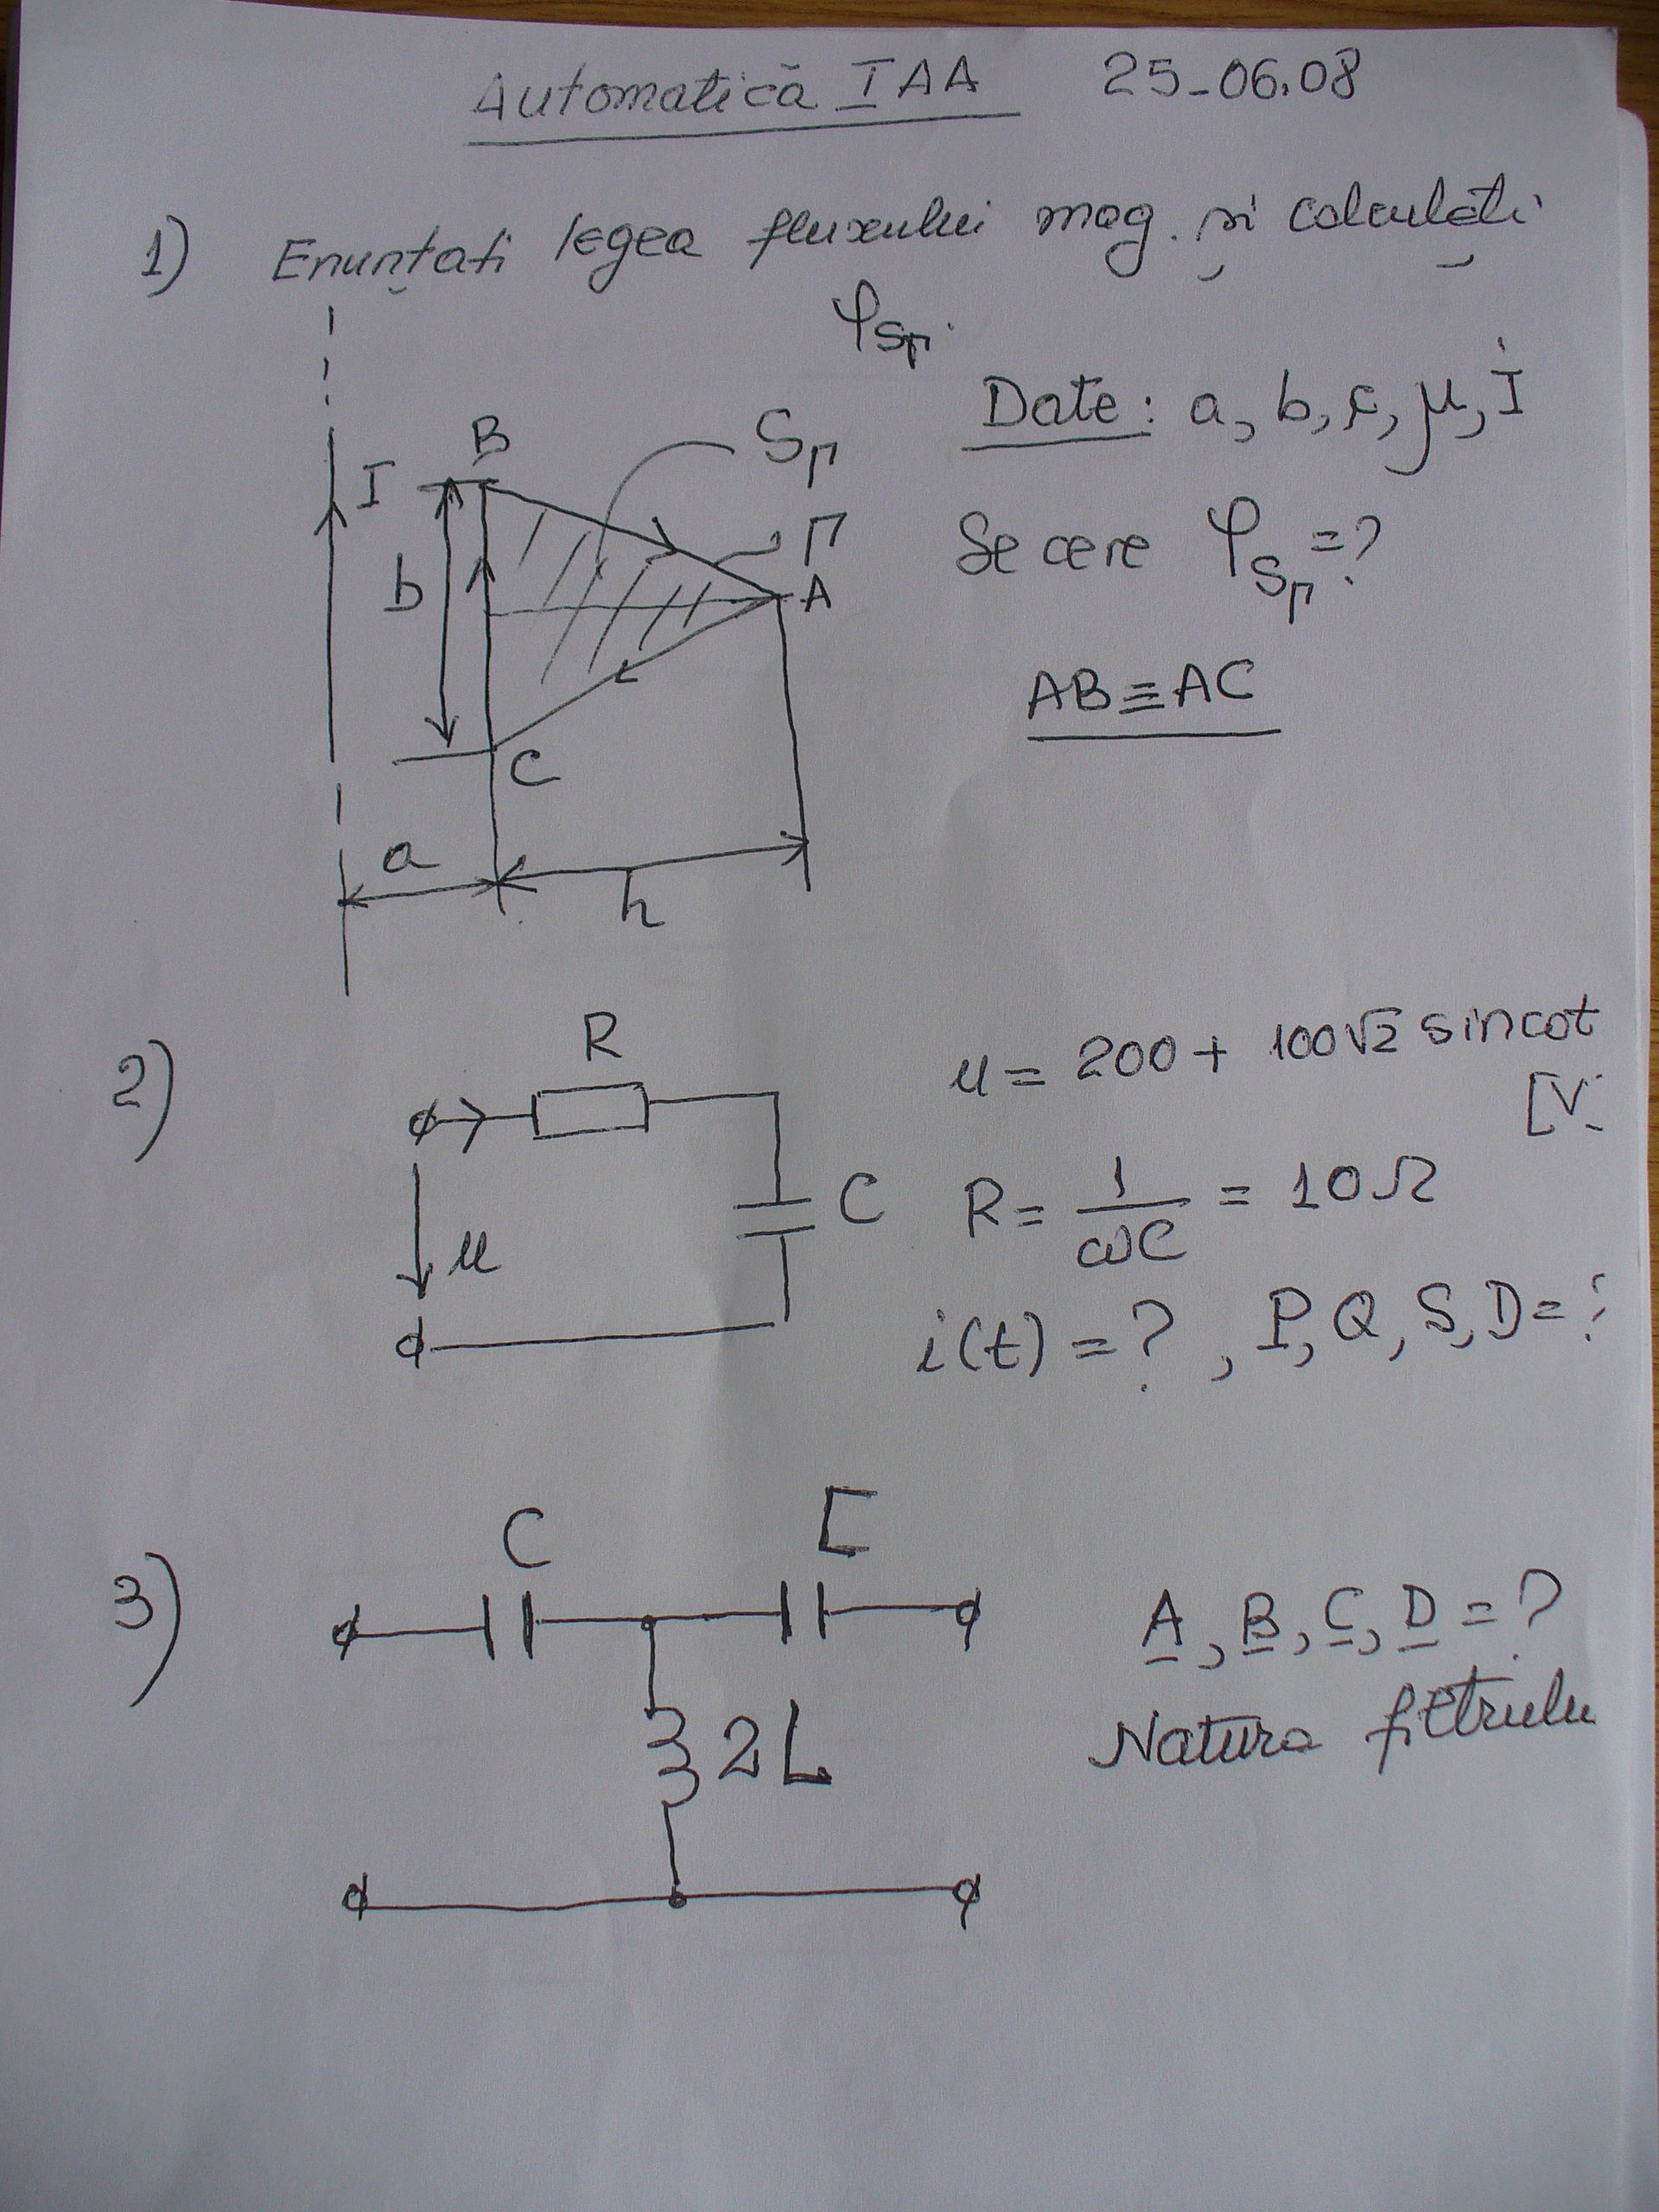 Automatică IAA 25-06.08
1) Enunțați legea fluxului mag. și calculați
φSΓ.
Date: a, b, c, μ, I
I
B
SΓ
Γ
Se cere φSΓ=?
b
A
AB≡AC
C
a
h
2)
R
u = 200 + 100√2 sinωt
[V]
C
R = 1/ωC = 10Ω
u
i(t) = ?, P, Q, S, D = ?
3)
C
C
A, B, C, D = ?
2L
Natura filtrului